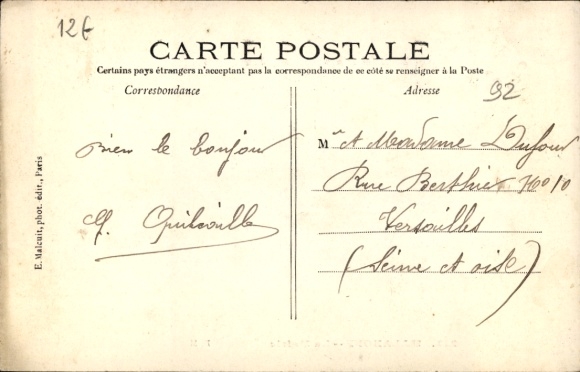 12 €
CARTE POSTALE
Certains pays étrangers n'acceptant pas la correspondance de ce côté se renseigner à la Poste
Correspondance
Adresse
92
Bien le bonjour
Mr et Madame Dufour
Rue Berthier No 10
Versailles
(Seine et oise)
E. Malcuit, phot. édit., Paris